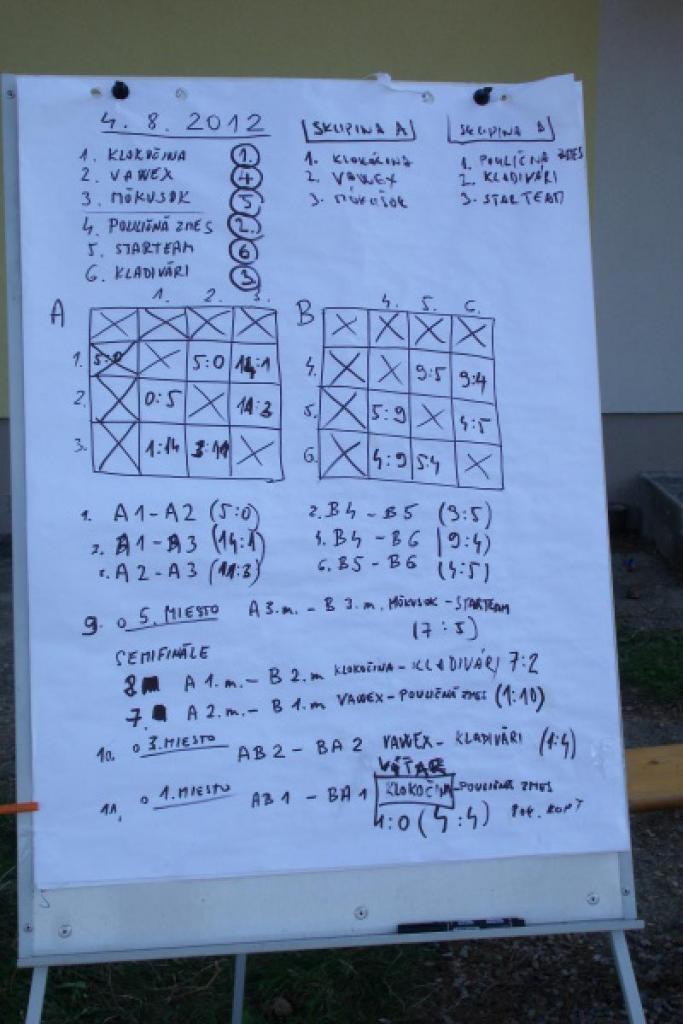 4. 8. 2012
1. KLOKOČINA 1.
2. VAWEX 4
3. MÖKUSOK 5
4. POULIČNÁ ZMES 2.
5. STARTEAM 6
6. KLADIVÁRI 3
SKUPINA A
1. KLOKOČINA
2. VAWEX
3. MÖKUSOK
SKUPINA B
1. POULIČNÁ ZMES
2. KLADIVÁRI
3. STARTEAM
A 1. 2. 3.
1. 5:0 5:0 14:1
2. 0:5 11:3
3. 1:14 3:11
B 4. 5. 6.
4. 9:5 9:4
5. 5:9 4:5
6. 4:9 5:4
1. A1-A2 (5:0)
2. B4-B5 (9:5)
3. A1-A3 (14:1)
4. B4-B6 (9:4)
5. A2-A3 (11:3)
6. B5-B6 (4:5)
9. O 5. MIESTO A 3.m. - B 3.m. MÖKUSOK - STARTEAM
(7:5)
SEMIFINÁLE
8 A 1.m. - B 2.m KLOKOČINA - KLADIVÁRI 7:2
7. A 2.m. - B 1.m VAWEX - POULIČNÁ ZMES (1:10)
10. O 3. MIESTO AB2 - BA2 VAWEX - KLADIVÁRI (1:4)
VÍŤAZ
11. O 1. MIESTO AB1 - BA1 KLOKOČINA - POULIČNÁ ZMES
1:0 (4:4) POK. KOPY